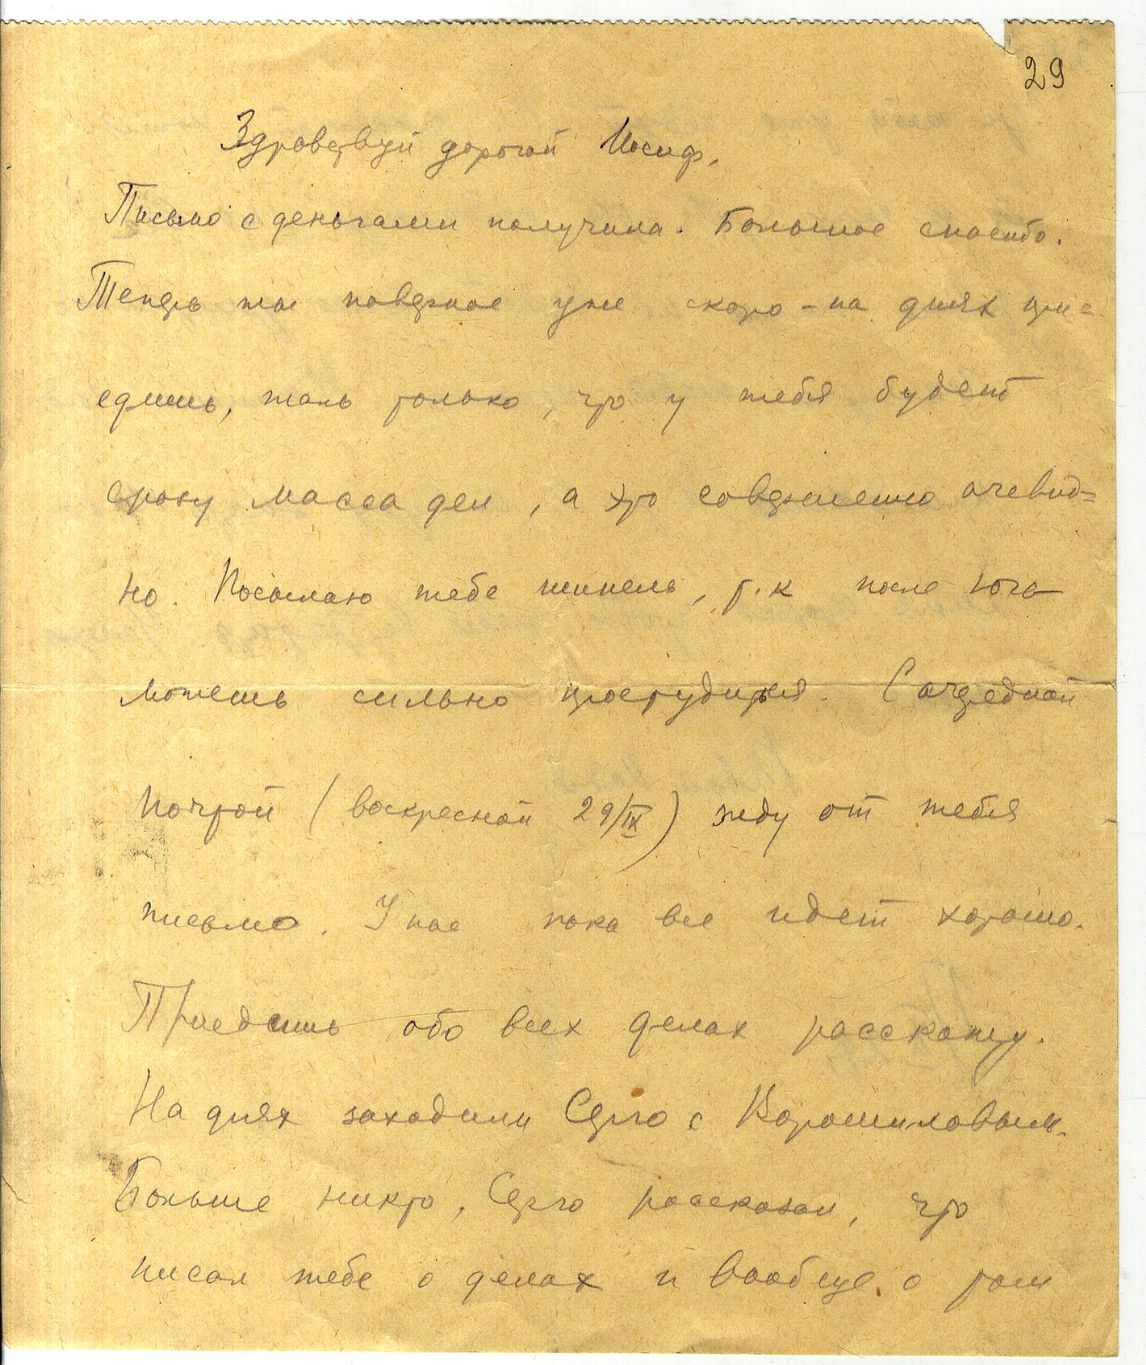 29
Здравствуй дорогой Иосиф,
Письмо с деньгами получила. Большое спасибо.
Теперь ты наверное уже скоро – на днях при=
едешь, жаль только, что у тебя будет
сразу масса дел, а это совершенно очевид=
но. Посылаю тебе шинель, т.к после юга
можешь сильно простудиться. С очередной
почтой (воскресной 29/IX) жду от тебя
письмо. У нас пока все идет хорошо.
Приедешь обо всех делах расскажу.
На днях заходили Серго с Ворошиловым.
Больше никто, Серго рассказал, что
писал тебе о делах и вообще о том